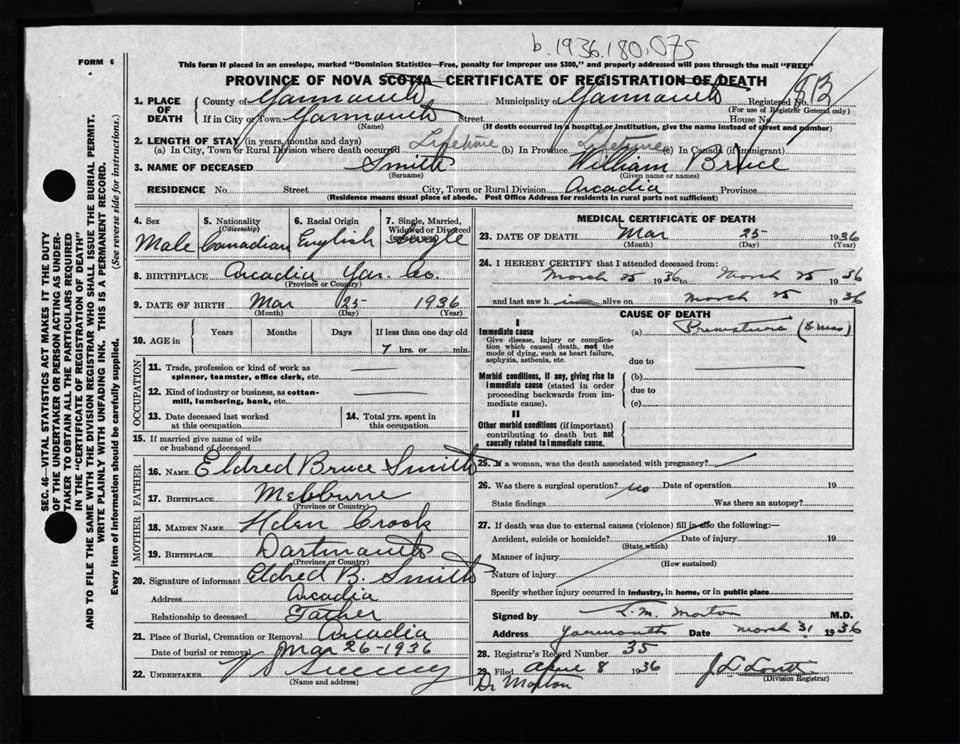 b.1936.180,075
FORM 6
This form if placed in an envelope, marked "Dominion Statistics—Free, penalty for improper use $300," and properly addressed will pass through the mail "FREE"
PROVINCE OF NOVA SCOTIA—CERTIFICATE OF REGISTRATION OF DEATH
1. PLACE OF DEATH County of Yarmouth Municipality of Yarmouth Registered No.
(For use of Registrar General only)
If in City or Town Yarmouth Street House No.
(Name) (If death occurred in a hospital or institution, give the name instead of street and number)
2. LENGTH OF STAY (in years, months and days)
(a) In City, Town or Rural Division where death occurred Lifetime (b) In Province Lifetime (c) In Canada (if immigrant)
3. NAME OF DECEASED Smith William Bruce
(Surname) (Given name or names)
RESIDENCE No. Street City, Town or Rural Division Arcadia Province
(Residence means usual place of abode. Post Office Address for residents in rural parts not sufficient)
4. Sex Male
5. Nationality (Citizenship) Canadian
6. Racial Origin English
7. Single, Married, Widowed or Divorced Single
8. BIRTHPLACE Arcadia Yar. Co.
(Province or Country)
9. DATE OF BIRTH Mar 25 1936
(Month) (Day) (Year)
10. AGE in Years Months Days If less than one day old
7 hrs. or min.
OCCUPATION
11. Trade, profession or kind of work as spinner, teamster, office clerk, etc.
12. Kind of industry or business, as cotton-mill, lumbering, bank, etc.
13. Date deceased last worked at this occupation
14. Total yrs. spent in this occupation
15. If married give name of wife or husband of deceased
FATHER
16. NAME Eldred Bruce Smith
17. BIRTHPLACE
(Province or Country)
MOTHER
18. MAIDEN NAME Helen Crook
19. BIRTHPLACE Dartmouth
(Province or Country)
20. Signature of informant Eldred B. Smith
Address Arcadia
Relationship to deceased Father
21. Place of Burial, Cremation or Removal Arcadia
Date of burial or removal Mar 26-1936
22. UNDERTAKER
(Name and address)
MEDICAL CERTIFICATE OF DEATH
23. DATE OF DEATH Mar 25 1936
(Month) (Day) (Year)
24. I HEREBY CERTIFY that I attended deceased from:
March 25 1936 to March 25 1936
and last saw h im alive on March 25 1936
CAUSE OF DEATH
I
Immediate cause (a) Premature
Give disease, injury or complication which caused death, not the mode of dying, such as heart failure, asphyxia, asthenia, etc.
due to
Morbid conditions, if any, giving rise to immediate cause (stated in order proceeding backwards from immediate cause).
(b)
due to
(c)
II
Other morbid conditions (if important) contributing to death but not causally related to immediate cause.
25. If a woman, was the death associated with pregnancy?
26. Was there a surgical operation? no Date of operation 19
State findings Was there an autopsy?
27. If death was due to external causes (violence) fill in also the following:—
Accident, suicide or homicide? Date of injury 19
(State which)
Manner of injury
(How sustained)
Nature of injury
Specify whether injury occurred in industry, in home, or in public place
Signed by Morton M.D.
Address Yarmouth Date March 31 1936
28. Registrar's Record Number 35
29. Filed April 8 1936
(Division Registrar)
Dr Morton
SEC. 46—VITAL STATISTICS ACT MAKES IT THE DUTY
OF THE UNDERTAKER OR PERSON ACTING AS UNDERTAKER TO OBTAIN ALL THE PARTICULARS REQUIRED
IN THE "CERTIFICATE OF REGISTRATION OF DEATH"
AND TO FILE THE SAME WITH THE DIVISION REGISTRAR WHO SHALL ISSUE THE BURIAL PERMIT.
WRITE PLAINLY WITH UNFADING INK. THIS IS A PERMANENT RECORD.
Every item of Information should be carefully supplied. (See reverse side for instructions.)